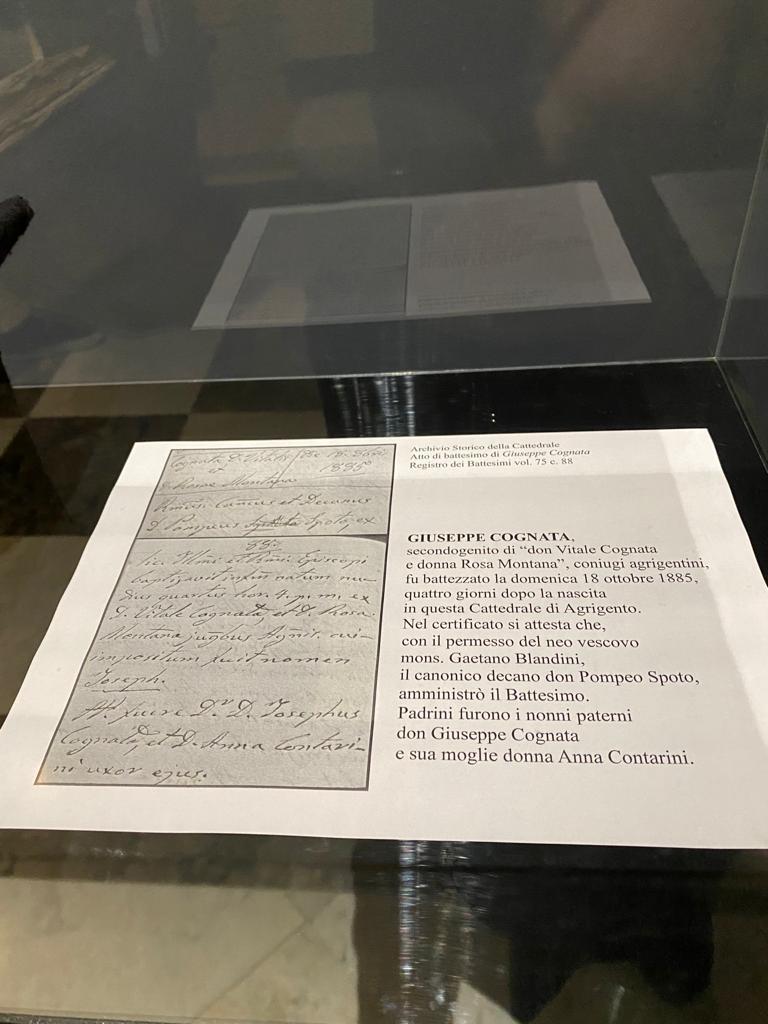 Cognata D. Vitalis
et
1885
D. Rosae Montana
Rmus. Cancus et Decanus
D. Pompeus Spoto, ex
88.
lic. Illmi et Rmi. Episcopi
baptizavit infm natum nu-
dius quartus hor. 4. p. m. ex
D. Vitale Cognata, et D. Rosa
Montana jugbus Agrit. cui
impositum fuit nomen
Joseph.
Pp. fuere D.r D. Josephus
Cognata, et D. Anna Contari-
ni uxor ejus.
Archivio Storico della Cattedrale
Atto di battesimo di Giuseppe Cognata
Registro dei Battesimi vol. 75 c. 88
GIUSEPPE COGNATA,
secondogenito di “don Vitale Cognata
e donna Rosa Montana”, coniugi agrigentini,
fu battezzato la domenica 18 ottobre 1885,
quattro giorni dopo la nascita
in questa Cattedrale di Agrigento.
Nel certificato si attesta che,
con il permesso del neo vescovo
mons. Gaetano Blandini,
il canonico decano don Pompeo Spoto,
amministrò il Battesimo.
Padrini furono i nonni paterni
don Giuseppe Cognata
e sua moglie donna Anna Contarini.